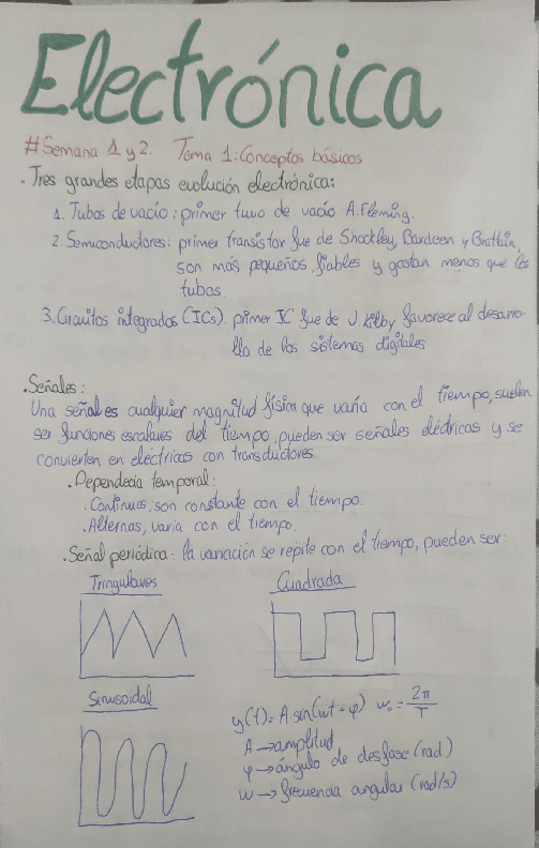 Electrónica
#Semana 1 y 2. Tema 1: Conceptos básicos
. Tres grandes etapas evolución electrónica:
1. Tubos de vacío: primer tuvo de vacío A. Fleming.
2. Semiconductores: primer transistor fue de Shockley, Bardeen y Brattain,
son más pequeños, fiables y gastan menos que los
tubos.
3. Circuitos integrados (ICs): primer IC fue de J. Kilby favorece al desarro-
llo de los sistemas digitales
. Señales:
Una señal es cualquier magnitud física que varía con el tiempo, suelen
ser funciones escalares del tiempo, pueden ser señales eléctricas y se
convierten en eléctricas con transductores.
. Dependecia temporal:
. Continuas; son constante con el tiempo.
. Alternas, varia con el tiempo.
. Señal periódica: la variación se repite con el tiempo, pueden ser:
Tringulares Cuadrada
Sinusoidal
y(t) = A sin(wt - φ) w₀ = 2π/T
A → amplitud
φ → ángulo de desfase (rad)
w → frecuencia angular (rad/s)